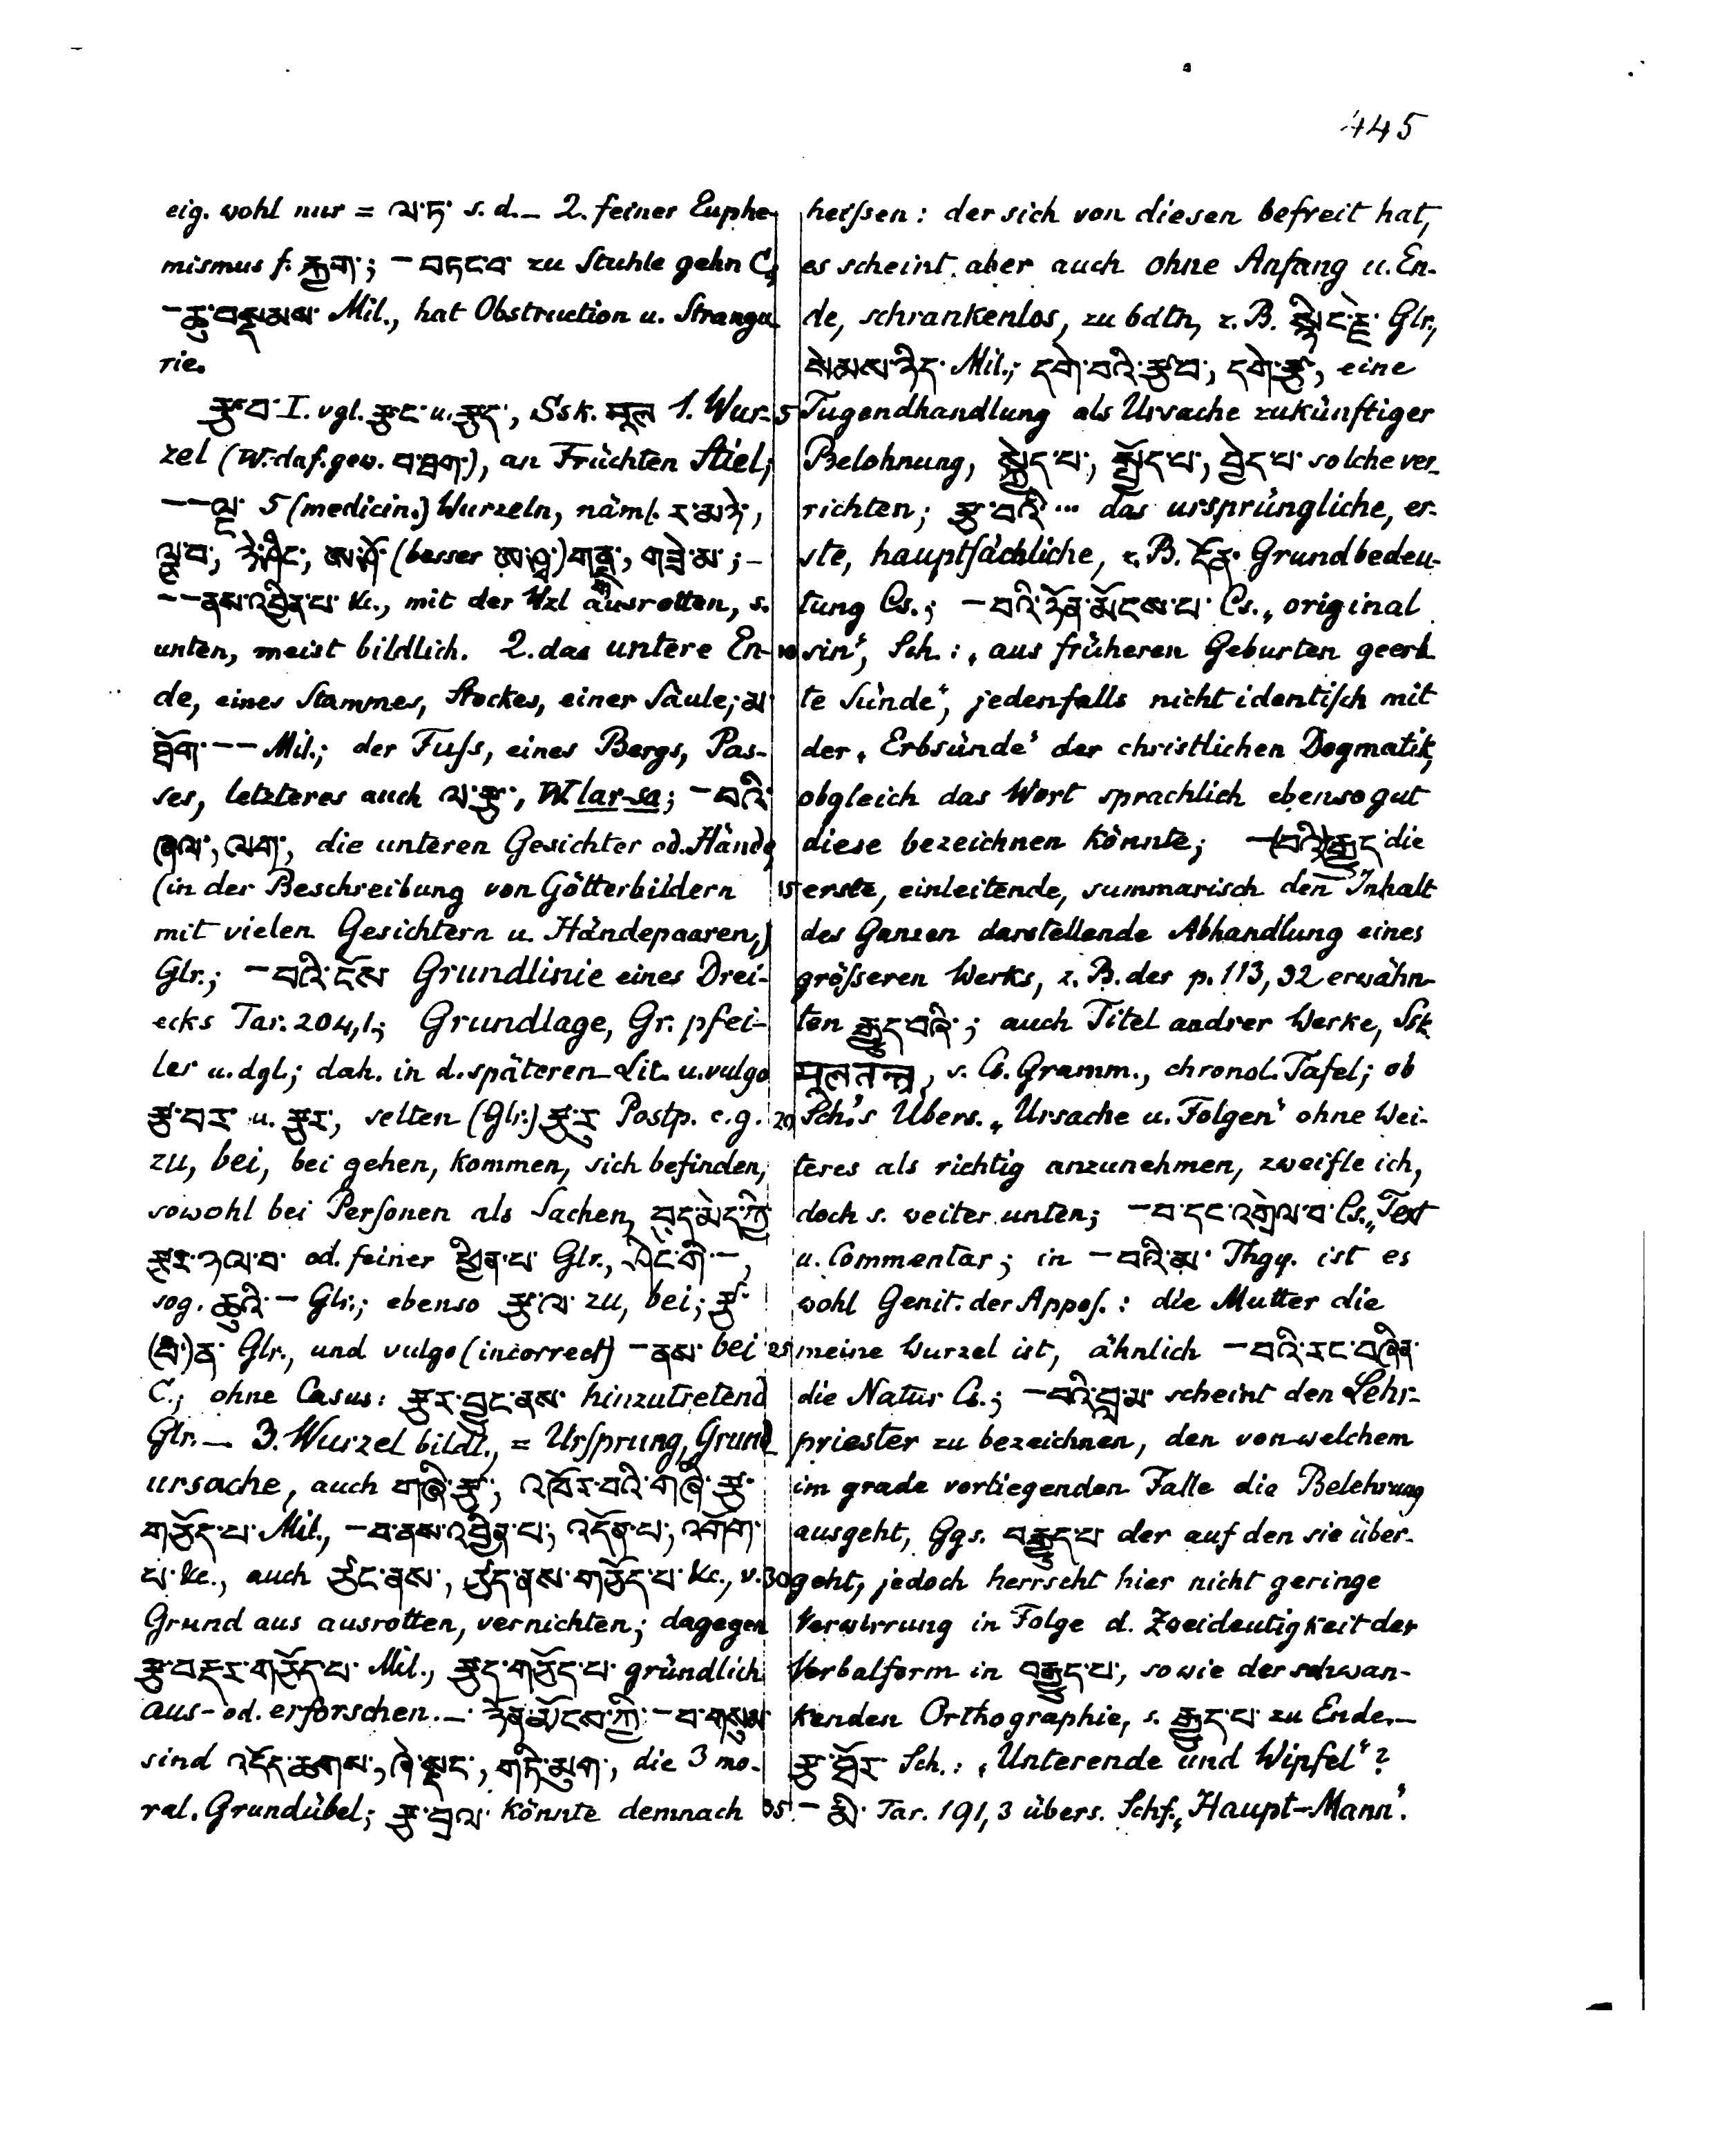 445
eig. wohl nur = ལ་ཏ་ s. d. — 2. feiner Euphe-
mismus f. རྐྱག་; — བཏང་བ་ zu Stuhle gehn C.,
— ཆུ་བསྡམས་ Mil., hat Obstruction u. Strangu
rie.
རྩ་བ་ I. vgl. རྩང་ u. རྩད་, Ssk. मूल 1. Wur-
zel (W. daf. gew. བ་ཐག་), an Früchten Stiel;
— — ལྔ་ 5 (medicin.) Wurzeln, näml. ར་མཉེ་,
ལྕ་བ་, ཉེ་ཤིང་, ཨ་ཤོ་ (besser ཨ་ཤྭ་) གནྡྷ་, གཟེ་མ་; —
— — ནས་འབྱིན་པ་ &c., mit der Wzl ausrotten, s.
unten, meist bildlich. 2. das untere En- 10
de, eines Stammes, Stockes, einer Säule; མ་
ཐོག་ — — Mil.; der Fuſs, eines Bergs, Pas-
ses, letzteres auch ལ་རྩ་, W. lar-sa; — བའི་
ཞལ་, ལག་, die unteren Gesichter od. Hände
(in der Beschreibung von Götterbildern 15
mit vielen Gesichtern u. Händepaaren,)
Glr.; — བའི་ངོས Grundlinie eines Drei-
ecks Tar. 204,1.; Grundlage, Gr. pfei-
ler u. dgl.; dah. in d. späteren Lit. u. vulgo
རྩ་བར་ u. རྩར་, selten (Glr.) རྩ་རུ Postp. c. g. 20
zu, bei, bei gehen, kommen, sich befinden,
sowohl bei Perſonen als Sachen, བུད་མེད་ཀྱི་
རྩར་ཉལ་བ་ od. feiner ཕྱིན་པ་ Glr., ཤིང་གི་ —,
sog. ཆུའི་ — Glr.; ebenso རྩ་ལ་ zu, bei; རྩ་
(བ་)ན་ Glr., und vulgo (incorrect) — ནས་ bei 25
C.; ohne Casus: རྩར་བྱུང་ནས་ hinzutretend
Glr. — 3. Wurzel bildl., = Urſprung, Grund
ursache, auch གཞི་རྩ་; འཁོར་བའི་གཞི་རྩ་
གཅོད་པ་ Mil., — བ་ནས་འབྱིན་པ་; འདོན་པ་; འགོག་
པ་ &c., auch རྩང་ནས་, རྩད་ནས་གཅོད་པ་ &c., v. 30
Grund aus ausrotten, vernichten; dagegen
རྩ་བ་དར་གཅོད་པ་ Mil., རྩད་གཅོད་པ་ gründlich
aus- od. erforschen. — ཉོན་མོངས་ཀྱི་ — བ་གསུམ་
sind འདོད་ཆགས་, ཞེ་སྡང་, གཏི་མུག་, die 3 mo-
ral. Grundübel; རྩ་བྲལ་ könnte demnach 35
heiſsen: der sich von diesen befreit hat,
es scheint aber auch ohne Anfang u. En-
de, schrankenlos, zu bdtn, z. B. སྙིང་རྗེ་ Glr.,
སེམས་ཉིད་ Mil.; དགེ་བའི་རྩ་བ་, དགེ་རྩ་, eine
5 Tugendhandlung als Ursache zukünftiger
Belohnung, སྐྱེད་པ་, སྤྱོད་པ་, བྱེད་པ་ solche ver-
richten; རྩ་བའི་ ... das ursprüngliche, er-
ste, hauptſächliche, z. B. དོན་ Grundbedeu-
tung Cs.; — བའི་ཉོན་མོངས་པ་ Cs. „original
sin“, Sch.: „aus früheren Geburten geerb
te Sünde“, jedenfalls nicht identiſch mit
der „Erbsünde“ der christlichen Dogmatik,
obgleich das Wort sprachlich ebenso gut
diese bezeichnen könnte; —(བའི་)རྒྱུད་ die
erste, einleitende, summarisch den Inhalt
des Ganzen darstellende Abhandlung eines
gröſseren Werks, z. B. der p. 113, 32 erwähn-
ten རྒྱུད་བཞི་; auch Titel andrer Werke, Ssk
मूलतन्त्र, s. Cs. Gramm., chronol. Tafel; ob
Sch.’s Übers. „Ursache u. Folgen“ ohne Wei-
teres als richtig anzunehmen, zweifle ich,
doch s. weiter unten; — བ་དང་འགྲེལ་བ་ Cs. „Text
u. Commentar; in — བའི་མ་ Thgy. ist es
wohl Genit. der Appoſ.: die Mutter die
meine Wurzel ist, ähnlich — བའི་རང་བཞིན་
die Natur Cs.; — བའི་བླ་མ་ scheint den Lehr-
priester zu bezeichnen, den von welchem
im grade vorliegenden Falle die Belehrung
ausgeht, Ggs. བརྒྱུད་པ་ der auf den sie über-
geht, jedoch herrscht hier nicht geringe
Verwirrung in Folge d. Zweideutigkeit der
Verbalform in བརྒྱུད་པ་, sowie der schwan-
kenden Orthographie, s. རྒྱུད་པ་ zu Ende. —
རྩ་ཐོར་ Sch.: „Unterende und Wipfel“?
— མི་ Tar. 191, 3 übers. Schf. „Haupt-Mann“.